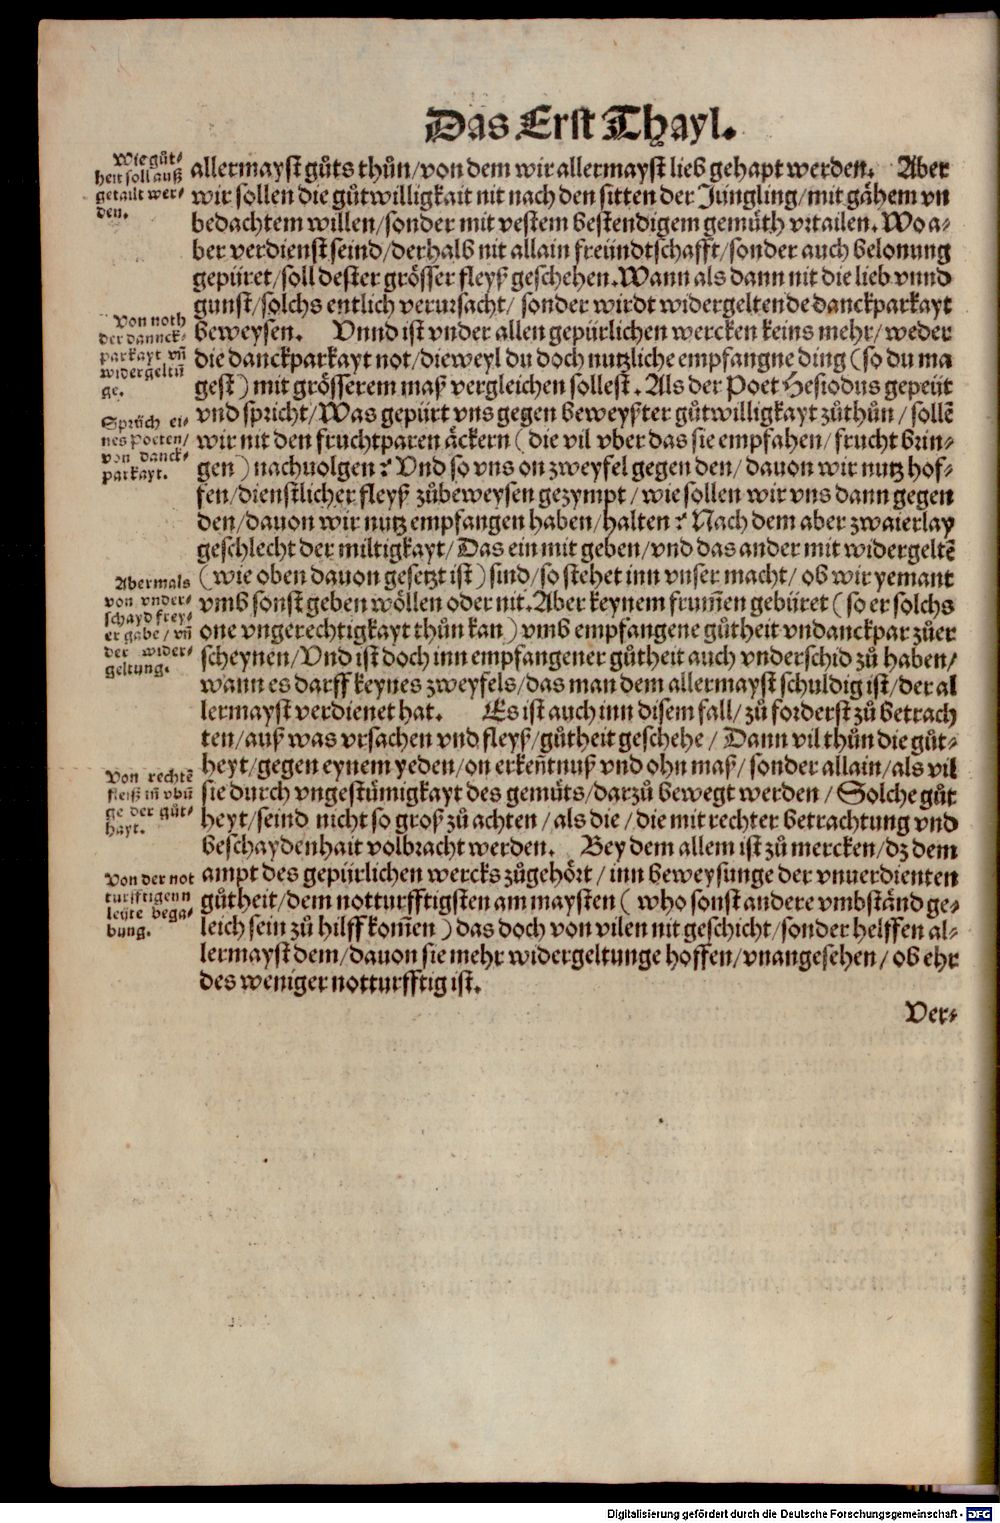 Das Erst Thayl.
Wie gůt-
heit soll auß
getailt wer-
den.
allermayst gůts thůn/von dem wir allermayst lieb gehapt werden. Aber
wir sollen die gůtwilligkait nit nach den sitten der Jüngling/mit gähem vn
bedachtem willen/sonder mit vestem bestendigem gemüth vrtailen. Wo a-
ber verdienst seind/derhalb nit allain freündtschafft/sonder auch belonung
gepüret/soll dester grösser fleyß geschehen. Wann als dann nit die lieb vnnd
gunst/solchs entlich verursacht/ sonder wirdt widergeltende danckparkayt
Von noth
der dannck-
parkayt vñ
widergeltũ
ge.
beweysen. Vnnd ist vnder allen gepürlichen wercken keins mehr/weder
die danckparkayt not/dieweyl du doch nutzliche empfangne ding (so du ma
gest) mit grösserem maß vergleichen sollest. Als der Poet Hesiodus gepeüt
Sprüch ei-
nes Poeten/
von danck-
parkayt.
vnd spricht/Was gepürt vns gegen beweyßter gůtwilligkayt zůthůn/sollẽ
wir nit den fruchtparen äckern (die vil vber das sie empfahen/frucht brin-
gen) nachuolgen? Vnd so vns on zweyfel gegen den/dauon wir nutz hof-
fen/dienstlicher fleyß zůbeweysen gezympt/wie sollen wir vns dann gegen
den/dauon wir nutz empfangen haben/halten? Nach dem aber zwaierlay
geschlecht der miltigkayt/Das ein mit geben/vnd das ander mit widergeltẽ
Abermals
von vnder-
schayd frey-
er gabe/vñ
der wider-
geltung.
(wie oben dauon gesetzt ist) sind/so stehet inn vnser macht/ob wir yemant
vmb sonst geben wöllen oder nit. Aber keynem frum̃en gebüret (so er solchs
one vngerechtigkayt thůn kan) vmb empfangene gůtheit vndanckpar zůer
scheynen/Vnd ist doch inn empfangener gůtheit auch vnderschid zů haben/
wann es darff keynes zweyfels/das man dem allermayst schuldig ist/der al
lermayst verdienet hat. Es ist auch inn disem fall/zů forderst zů betrach
ten/auß was vrsachen vnd fleyß/gůtheit geschehe/Dann vil thůn die gůt-
Von rechtẽ
fleiß iñ vbũ
ge der gůt-
hayt.
heyt/gegen eynem yeden/on erkeñtnuß vnd ohn maß/sonder allain/als vil
sie durch vngestümigkayt des gemüts/darzů bewegt werden/Solche gůt
heyt/seind nicht so groß zů achten/als die/die mit rechter betrachtung vnd
beschaydenhait volbracht werden. Bey dem allem ist zů mercken/dz dem
Von der not
turfftigenn
leüte bega-
bung.
ampt des gepürlichen wercks zůgehört/inn beweysunge der vnuerdienten
gůtheit/dem notturfftigsten am maysten (who sonst andere vmbständ ge-
leich sein zů hilff kom̃en) das doch von vilen nit geschicht/sonder helffen al-
lermayst dem/dauon sie mehr widergeltunge hoffen/vnangesehen/ob ehr
des weniger notturfftig ist.
Ver-
Digitalisierung gefördert durch die Deutsche Forschungsgemeinschaft - DFG